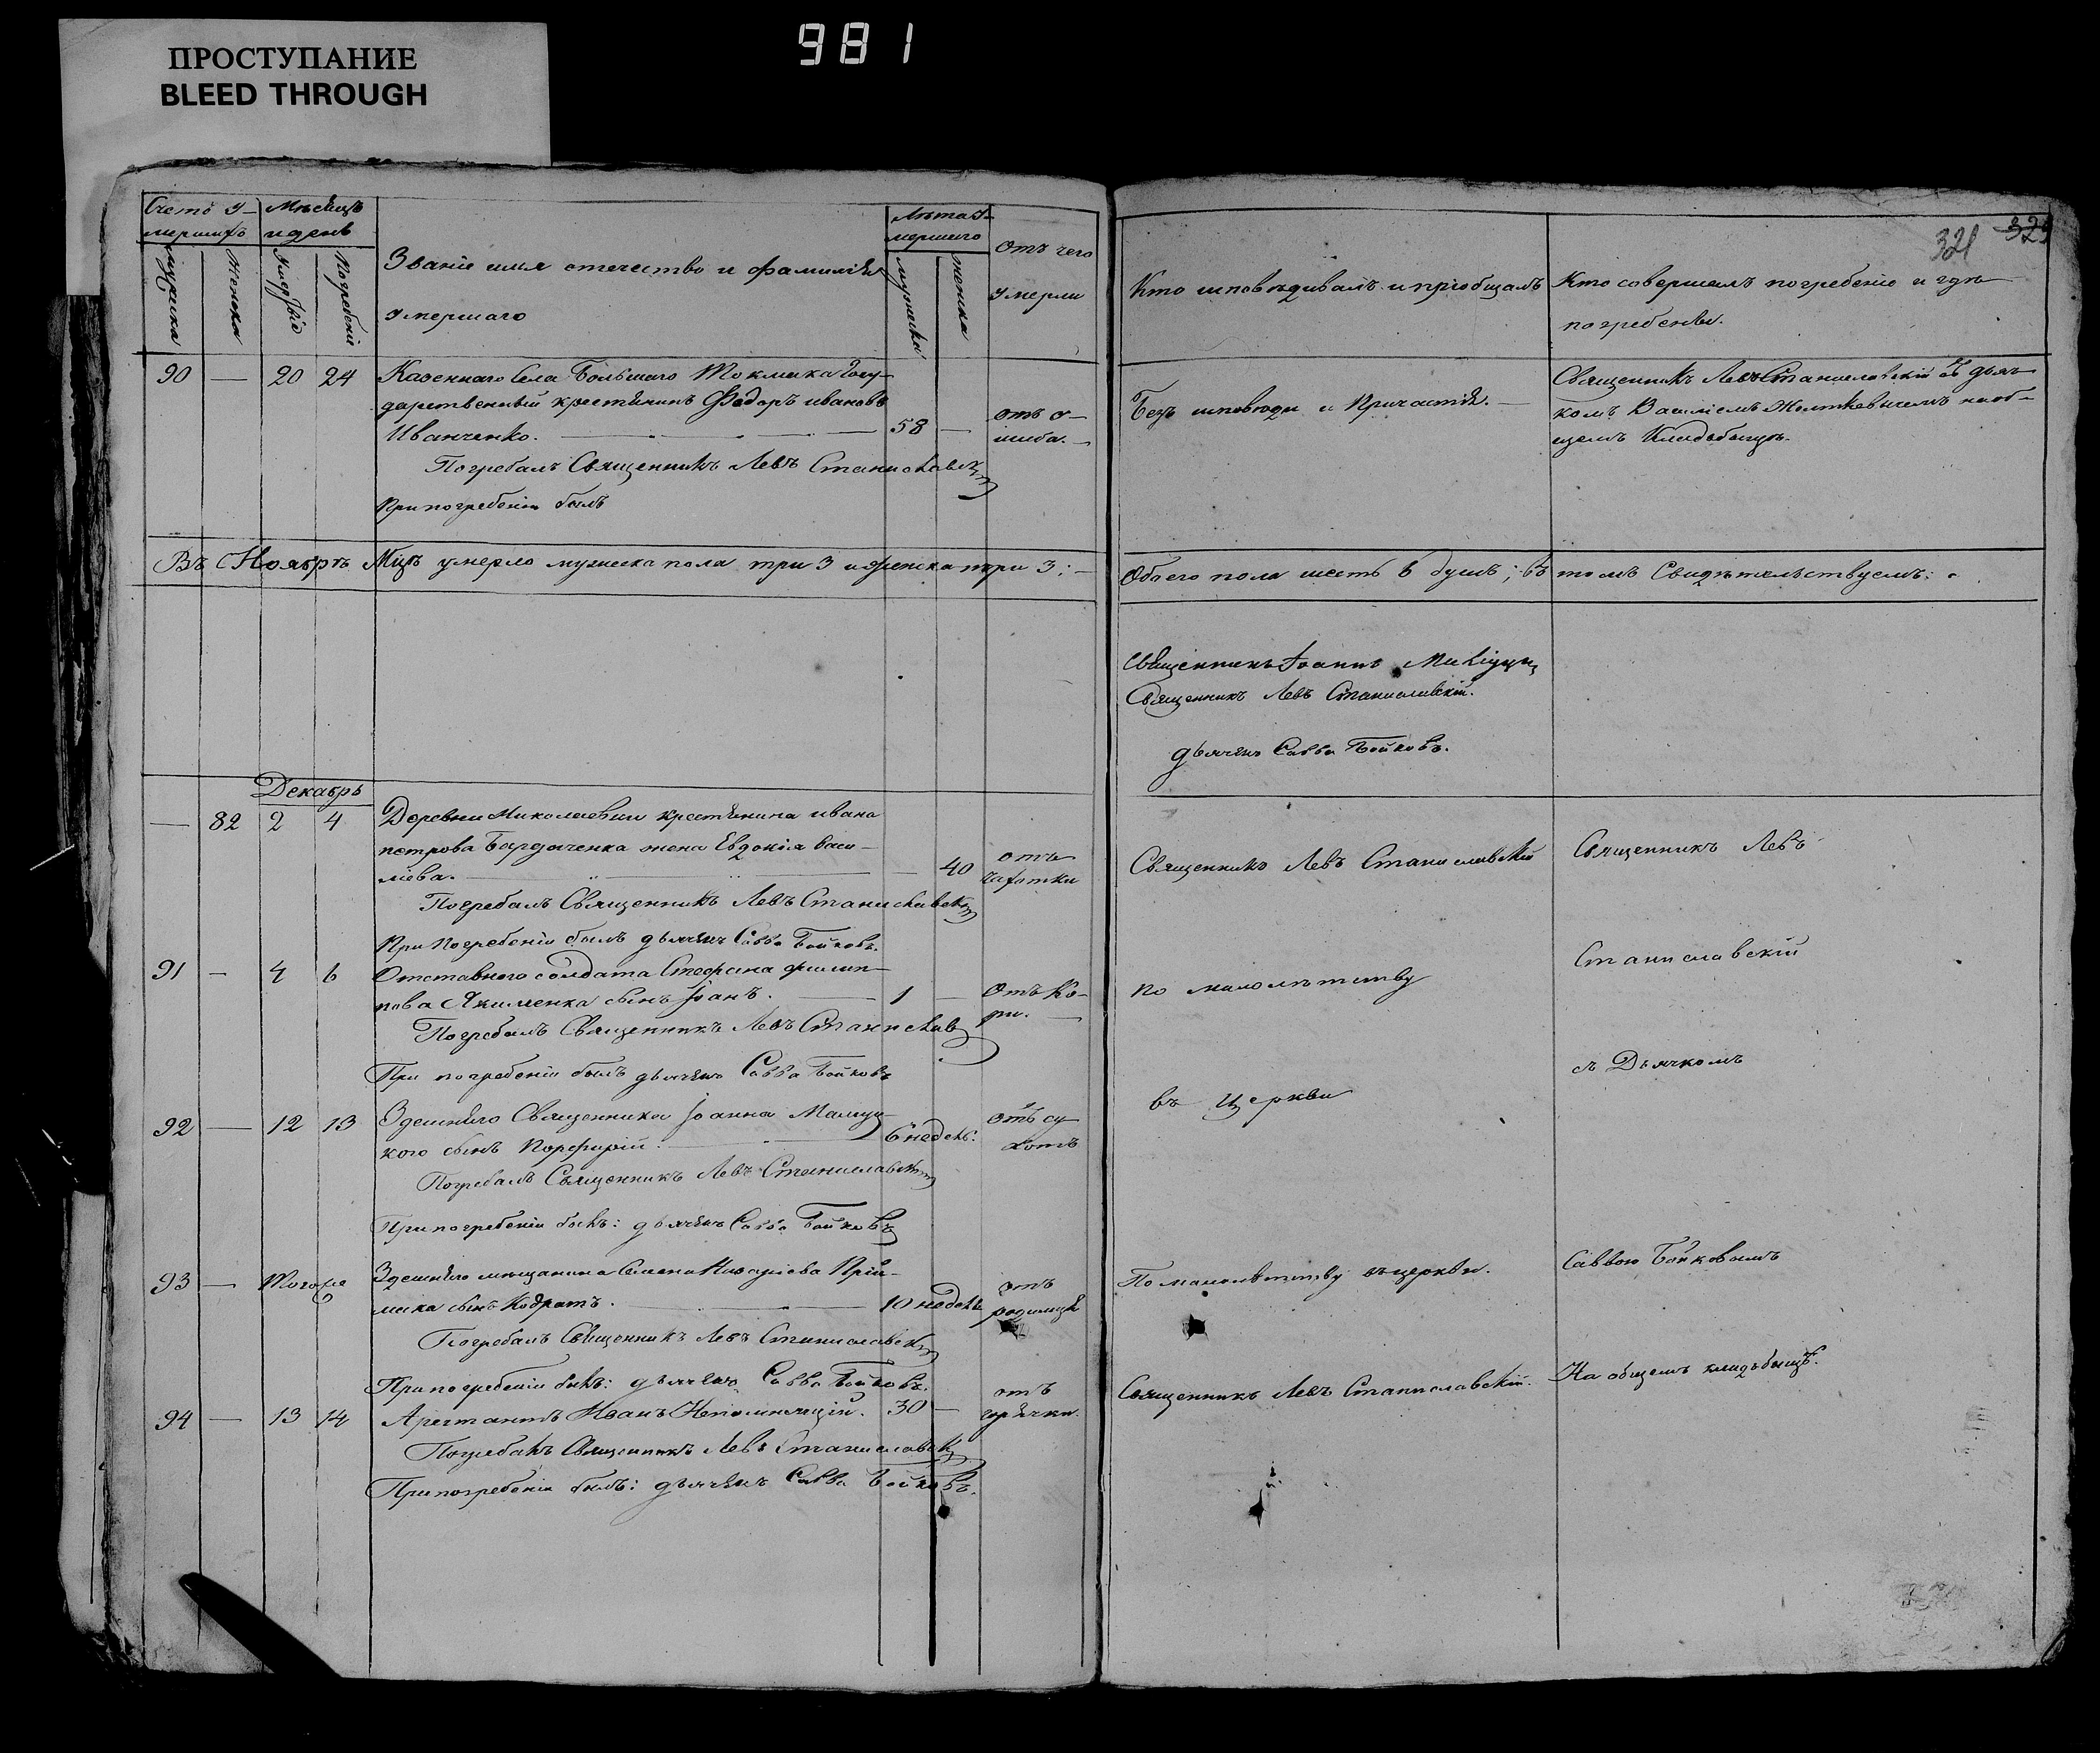 981
ПРОСТУПАНИЕ
BLEED THROUGH
Счетъ у-
мершихъ
Мѣсяцъ
и день
Званіе имя отечество и фамилія
умершаго
Лѣта у-
мершаго
Отъ чего
умерли
мужеска
женска
Погребенія
мужеска
женска
321
323
Кто исповѣдивалъ и пріобщалъ
Кто совершалъ погребеніе и гдѣ
погребены.
90 — 20 24
Казеннаго Села Большаго Токмака Госу-
дарственный крестьянинъ Федоръ ивановъ
Иванченко. — 58 —
отъ у-
шиба. —
Погребалъ Священникъ Левъ Станиславскій
При погребеніи былъ
Безъ исповѣди и Причастія. —
Священникъ Левъ Станиславскій съ дьяч-
комъ Василіемъ на об-
щемъ Кладбищѣ.
Въ Ноябрѣ Мцѣ умерло мужеска пола три 3 и женска три 3; —
Обоего пола шесть 6 душъ; въ томъ Свидѣтельствуемъ:
Священникъ Іоаннъ
Священникъ Левъ Станиславскій.
дьячекъ Савва Бойковъ.
Декабрь
— 82 2 4
Деревни Николаевки крестьянина ивана
петрова Бардаченка жена Евдокія васи-
ліева. — 40
отъ
чахотки
Погребалъ Священникъ Левъ Станиславскій
При погребеніи былъ дьячекъ Савва Бойковъ.
Священникъ Левъ Станиславскій
Священникъ Левъ
91 — 4 6
Отставного солдата Стефана филип-
пова Якименка сынъ Іоанъ. — 1 —
Отъ ко-
ри. —
Погребалъ Священникъ Левъ Станиславс
При погребеніи былъ дьячекъ Савва Бойковъ
по малолѣтству
Станиславскій
92 — 12 13
Здешняго Священника Іоанна
кого сынъ Порфирій. — 6 недель:
Отъ су
хотъ
Погребалъ Священникъ Левъ Станиславскій
При погребеніи былъ: дьячекъ Савва Бойковъ
въ Церкви
съ Дьячкомъ
93 — Тогоже
Здешняго мещанина Семена Назарова Прій-
мака сынъ Кодратъ. — 10 недель
отъ
родимца
Погребалъ Священникъ Левъ Станиславскій
При погребеніи былъ: дьячекъ Савва Бойковъ.
По малолѣтству въ церкви.
Саввою Бойковымъ
94 — 13 14
Арестантъ Иванъ Непомнящій. 30 —
отъ
горячки.
Погребалъ Священникъ Левъ Станиславскій
При погребеніи былъ: дьячекъ Савва Бойковъ.
Священникъ Левъ Станиславскій.
На общемъ кладбищѣ.